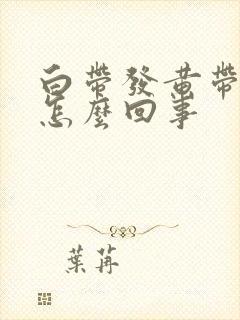 白帶發黃帶
怎麼回事
葉苒